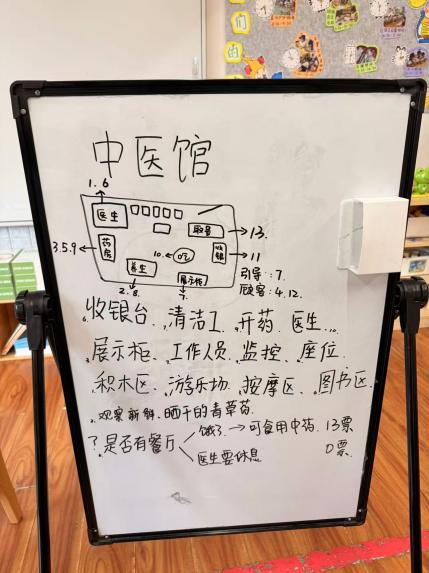 中医馆
1.6
医生
取号
→13.
3.5.9←
药房
10.
吃
收银
→11
养生
展示柜
引导:7.
2.8.
7.
顾客:4.12.
收银台、清洁工、开药、医生...
展示柜、工作人员、监控、座位
积木区、游乐场、按摩区、图书区
观察新鲜、晒干的青草药.
?是否有餐厅
饿了→可食用中药. 13票
医生要休息 0票